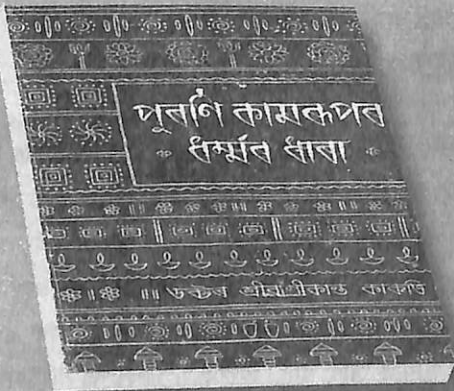 পুৰণি কামৰূপৰ
ধৰ্ম্মৰ ধাৰা
ডক্টৰ শ্ৰীবাণীকান্ত কাকতি